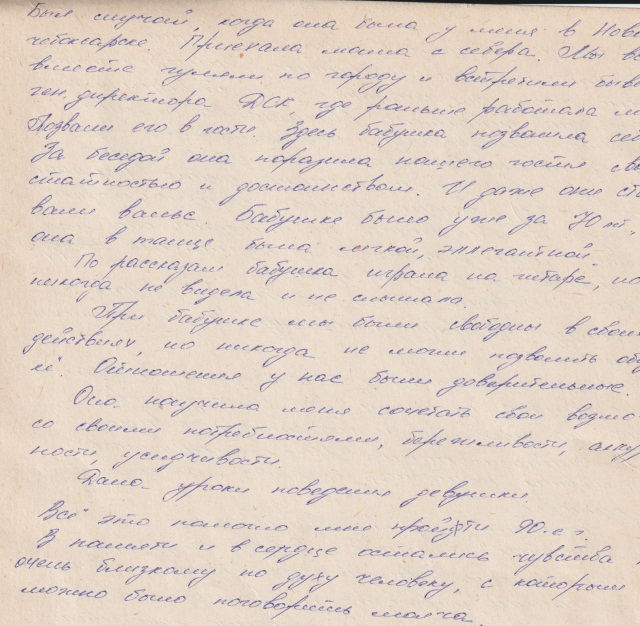 Был случай, когда она была у меня в Ново
чебоксарске. Приехала мама с севера. Мы вс
вместе гуляли по городу и встретили бывш
ген. директора ДСК, где раньше работала м
Позвали его в гости. Здесь бабушка позволила себ
За беседой она поразила нашего гостя сво
статностью и достоинством. И даже они ст
вали вальс. Бабушке было уже за 70 лет,
она в танце была легкой, эллегантной.
По рассказам бабушка играла на гитаре, но
никогда не видела и не слышала.
При бабушке мы были свободны в свои
действиях, но никогда не могли позволить оби
её. Отношения у нас были доверительные.
Она научила меня сочетать свои возмо
со своими потребностями, бережливости, акку
ности, усидчивости.
Дала уроки поведения девушки.
Всё это помогло мне пройти 90-е г.
В памяти и в сердце остались чувства
очень близкому по духу человеку, с которым
можно было поговорить молча.